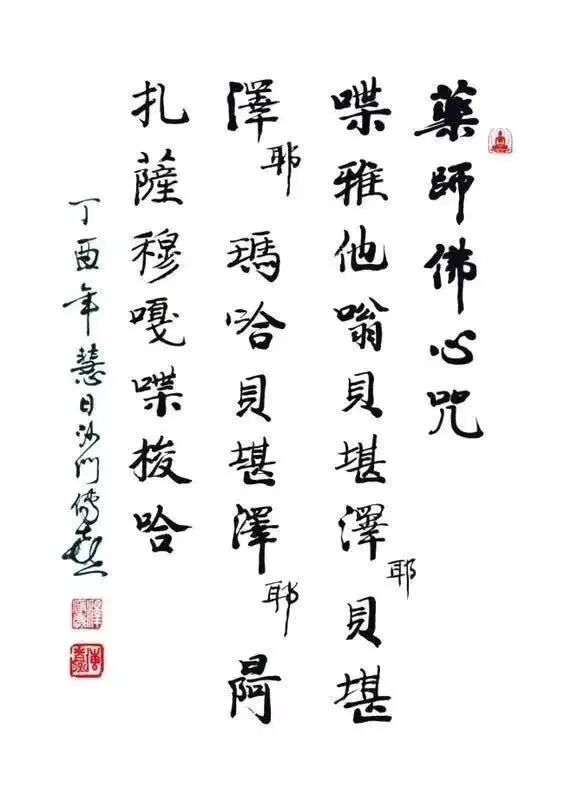 藥師佛心咒
喋雅他嗡貝堪澤耶貝堪
澤耶瑪哈貝堪澤耶喝
扎薩穆嘎喋梭哈
丁酉年慧日沙門傳喜